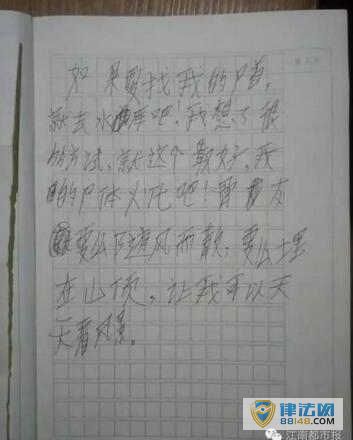 如果要找我的尸首,
就去水库吧!我想了很
方试,就这个最好,我
的尸体火化吧!
要么随风而散,要么埋
在山顶,让我可以天
天看风景。
律法网
88148.com
江南都市报